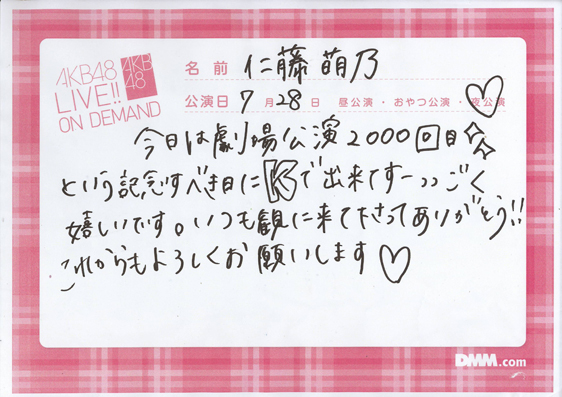 AKB48
LIVE!!
ON DEMAND
AKB
48
名前 仁藤萌乃
公演日 7月28日 昼公演・おやつ公演・夜公演
今日は劇場公演2000回目
という記念すべき日にKで出来てすーっごく
嬉しいです。いつも観に来て下さってありがとう!!
これからもよろしくお願いします♡
DMM.com